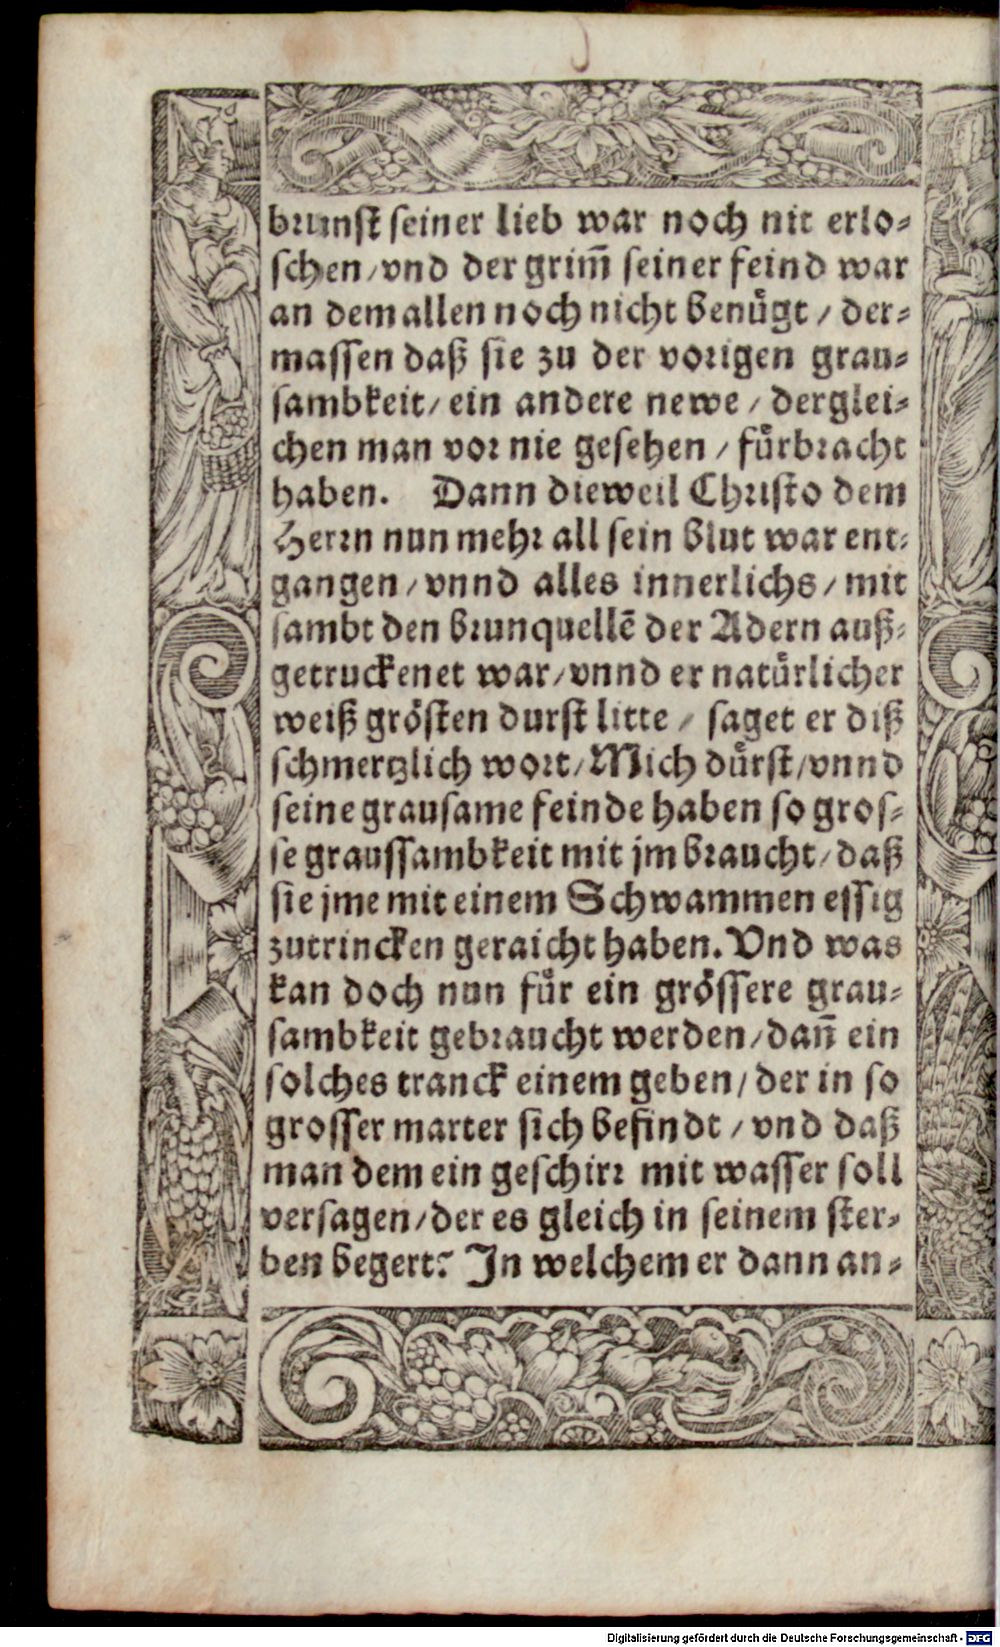 brunst seiner lieb war noch nit erlo⸗
schen/vnd der grim̃ seiner feind war
an dem allen noch nicht benuͤgt / der⸗
massen daß sie zu der vorigen grau⸗
sambkeit/ ein andere newe / derglei⸗
chen man vor nie gesehen / fuͤrbracht
haben. Dann dieweil Christo dem
Herrn nun mehr all sein blut war ent⸗
gangen/vnnd alles innerlichs/mit
sambt den brunquellẽ der Adern auß⸗
getruckenet war/vnnd er natuͤrlicher
weiß groͤsten durst litte / saget er diß
schmertzlich wort/Mich duͤrst/vnnd
seine grausame feinde haben so gros⸗
se graussambkeit mit jm braucht/daß
sie jme mit einem Schwammen essig
zutrincken geraicht haben. Vnd was
kan doch nun fuͤr ein groͤssere grau⸗
sambkeit gebraucht werden/dañ ein
solches tranck einem geben/der in so
grosser marter sich befindt / vnd daß
man dem ein geschirr mit wasser soll
versagen/der es gleich in seinem ster⸗
ben begert? In welchem er dann an⸗
Digitalisierung gefördert durch die Deutsche Forschungsgemeinschaft - DFG